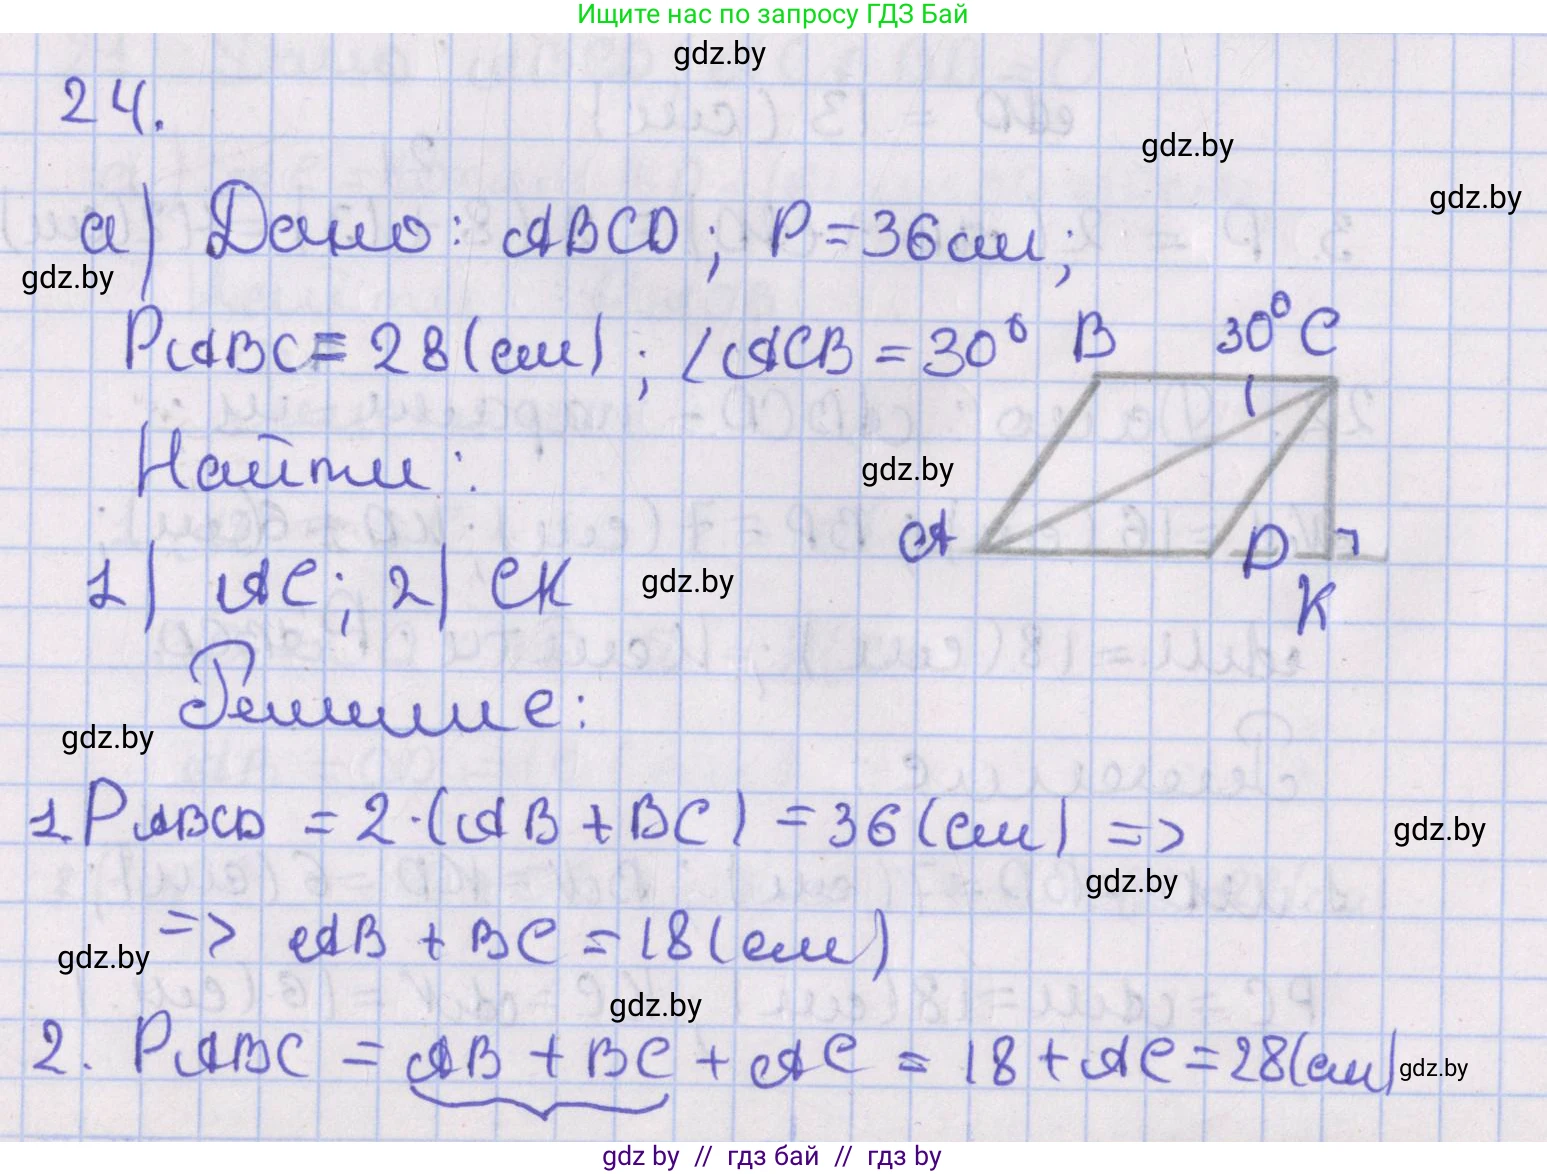 Ищите нас по запросу ГДЗ Бай
gdz.by
24.
gdz.by
gdz.by
а) Дано: ABCD; P = 36 см;
gdz.by
PABC = 28 (см); ∠ACB = 30°
B 30° C
Найти:
gdz.by
A D K
1) AC; 2) CK
gdz.by
Решение:
gdz.by
1. PABCD = 2·(AB + BC) = 36 (см) =>
gdz.by
gdz.by
=> AB + BC = 18 (см)
gdz.by
gdz.by
2. PABC = AB + BC + AC = 18 + AC = 28 (см)
gdz.by
gdz by // гдз бай // гдз by